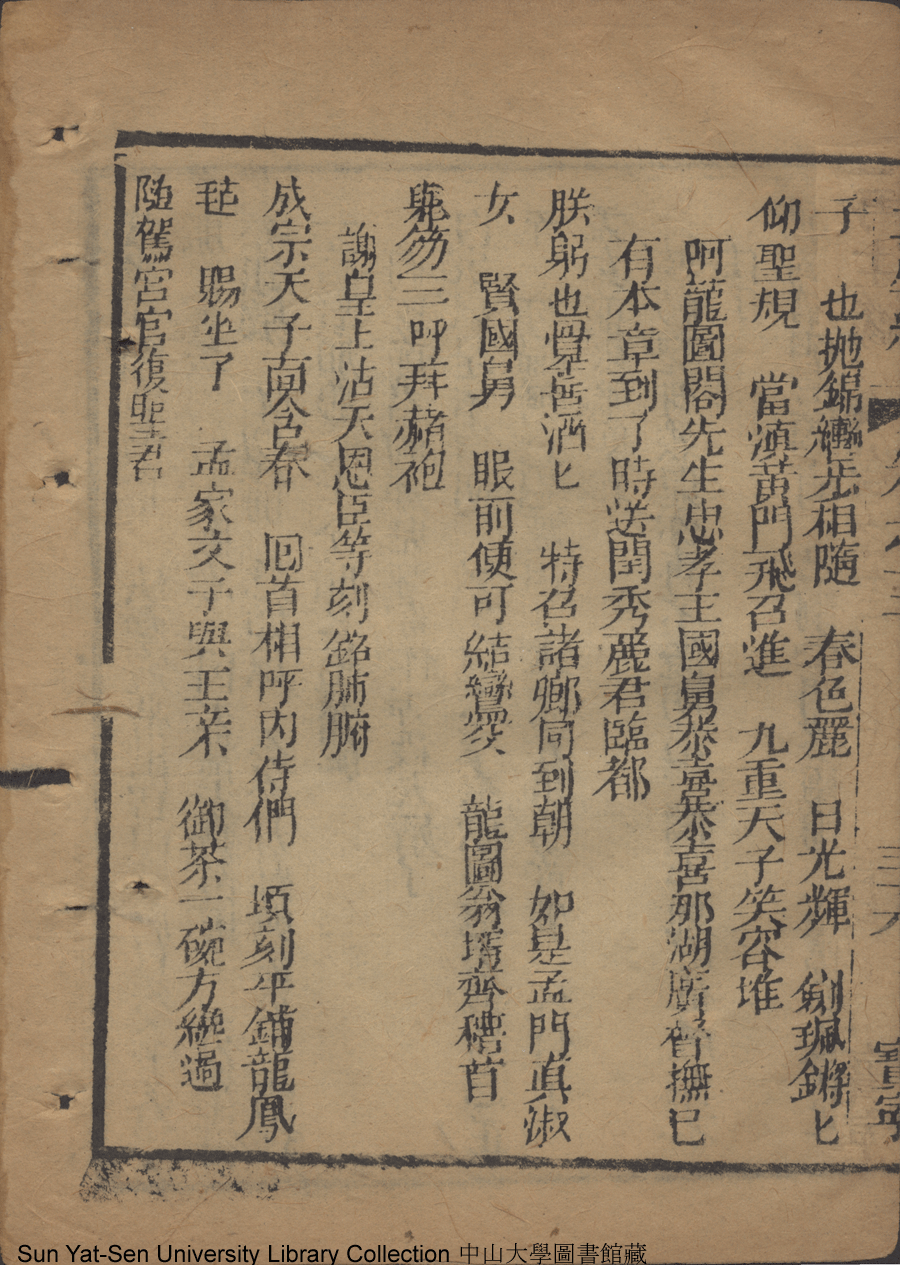 子　也抛錦纏先相隨　春色麗　日光輝　劍珮鏘匕
仰聖規　當滇黄門飛召進　九重天子笑容堆
阿龍圖閣先生忠孝王國舅恭喜恭喜那湖廣督撫已
有本章到了時送閨秀麗君臨都
朕躬也覺喜洒匕　特召諸鄉同到朝　如是孟門真淑
女　賢國舅　眼前便可結鸞交　龍圖翁壻齊稽首
笏三呼拜赭袍
謝皇上沾天恩臣等刻銘肺腑
成宗天子面含春　囬首相呼内侍們　頃刻平鋪龍鳳
毡　賜坐了　孟家父子與王亲　御茶一碗方纔過
随駕宮官復聖君
三十八
寳寧
Sun Yat-Sen University Library Collection 中山大學圖書館藏